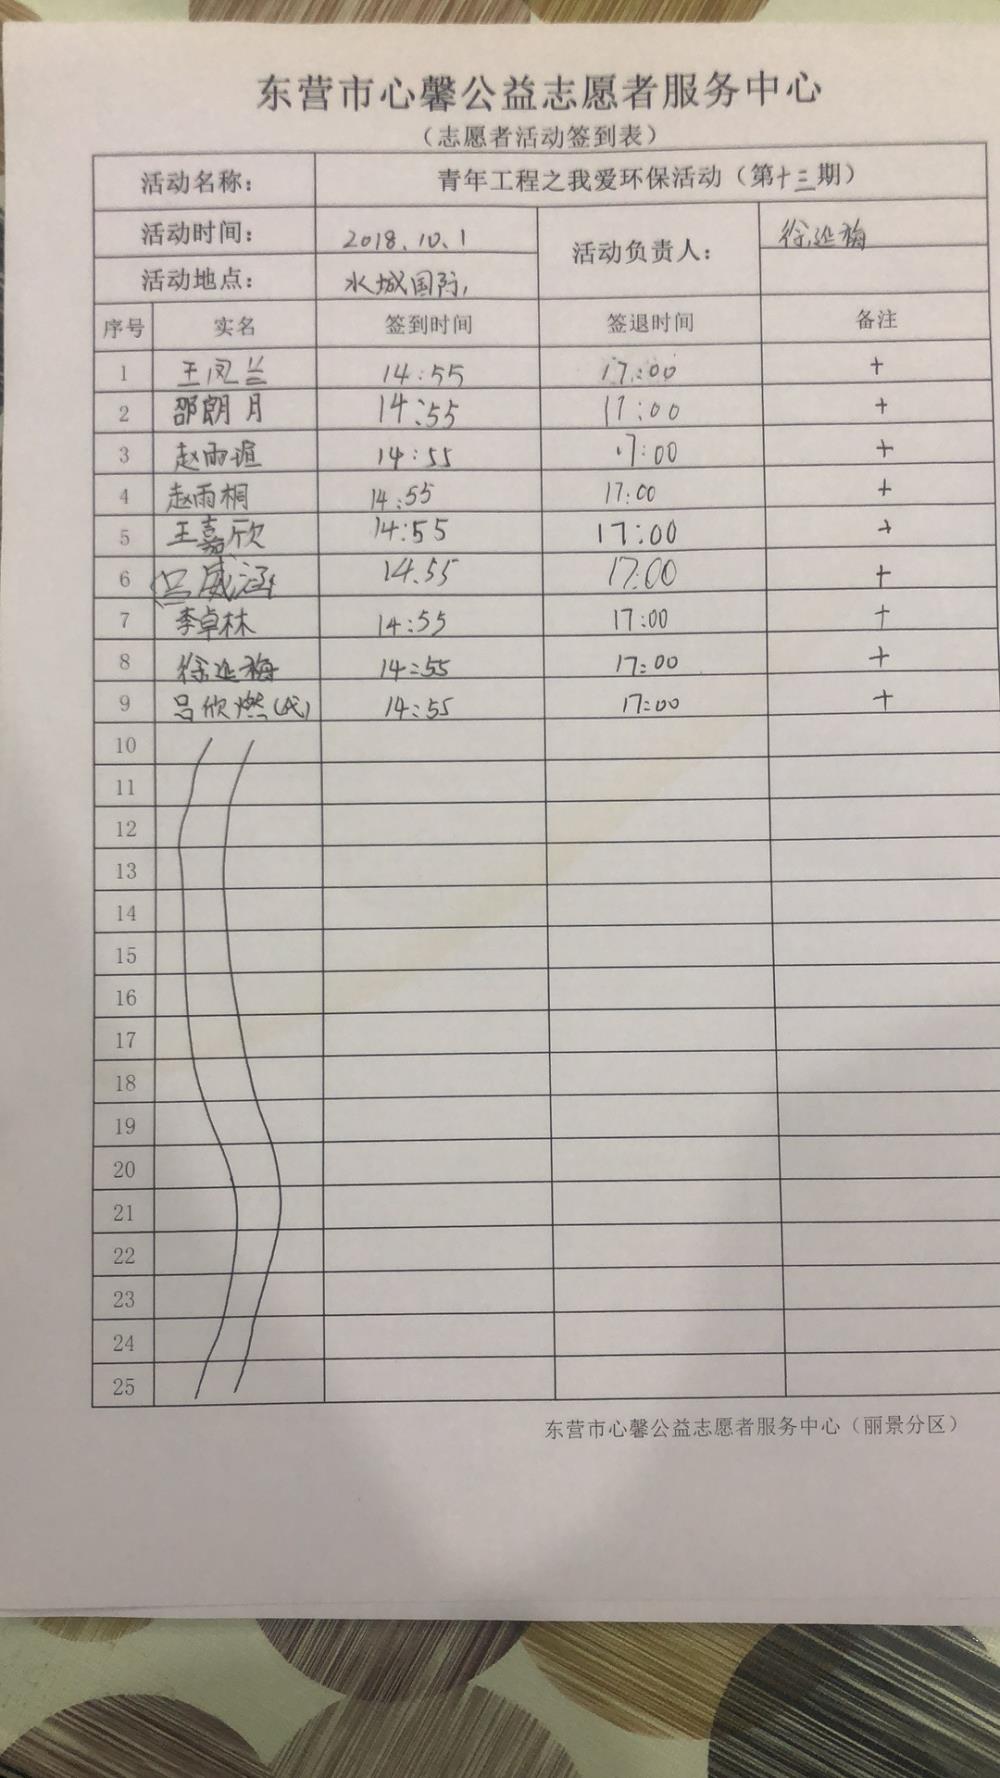 东营市心馨公益志愿者服务中心
（志愿者活动签到表）
活动名称： 青年工程之我爱环保活动（第十三期）
活动时间： 2018.10.1 活动负责人： 徐延梅
活动地点： 水城国际
序号 实名 签到时间 签退时间 备注
1 王凤兰 14:55 17:00 +
2 邵朗月 14:55 17:00 +
3 赵雨 14:55 17:00 +
4 赵雨桐 14:55 17:00 +
5 王嘉欣 14:55 17:00 +
6 吕威涵 14.55 17:00 +
7 李卓林 14:55 17:00 +
8 徐延梅 14:55 17:00 +
9 吕欣燃(代) 14:55 17:00 +
10
11
12
13
14
15
16
17
18
19
20
21
22
23
24
25
东营市心馨公益志愿者服务中心（丽景分区）